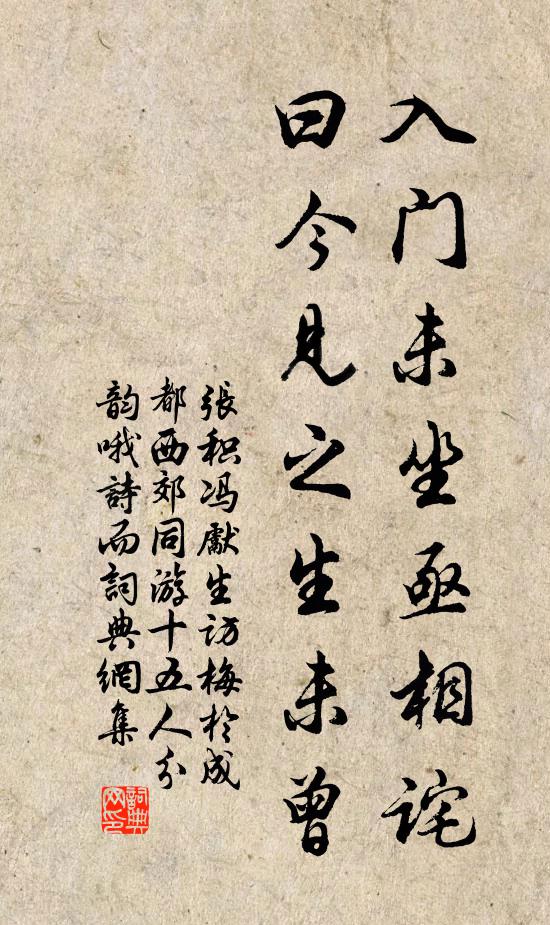 入门未坐亟相诧
曰今见之生未曾
張积冯獻生访梅於成
都西郊同游十五人分
韵哦詩而詞典網集
詞典网印